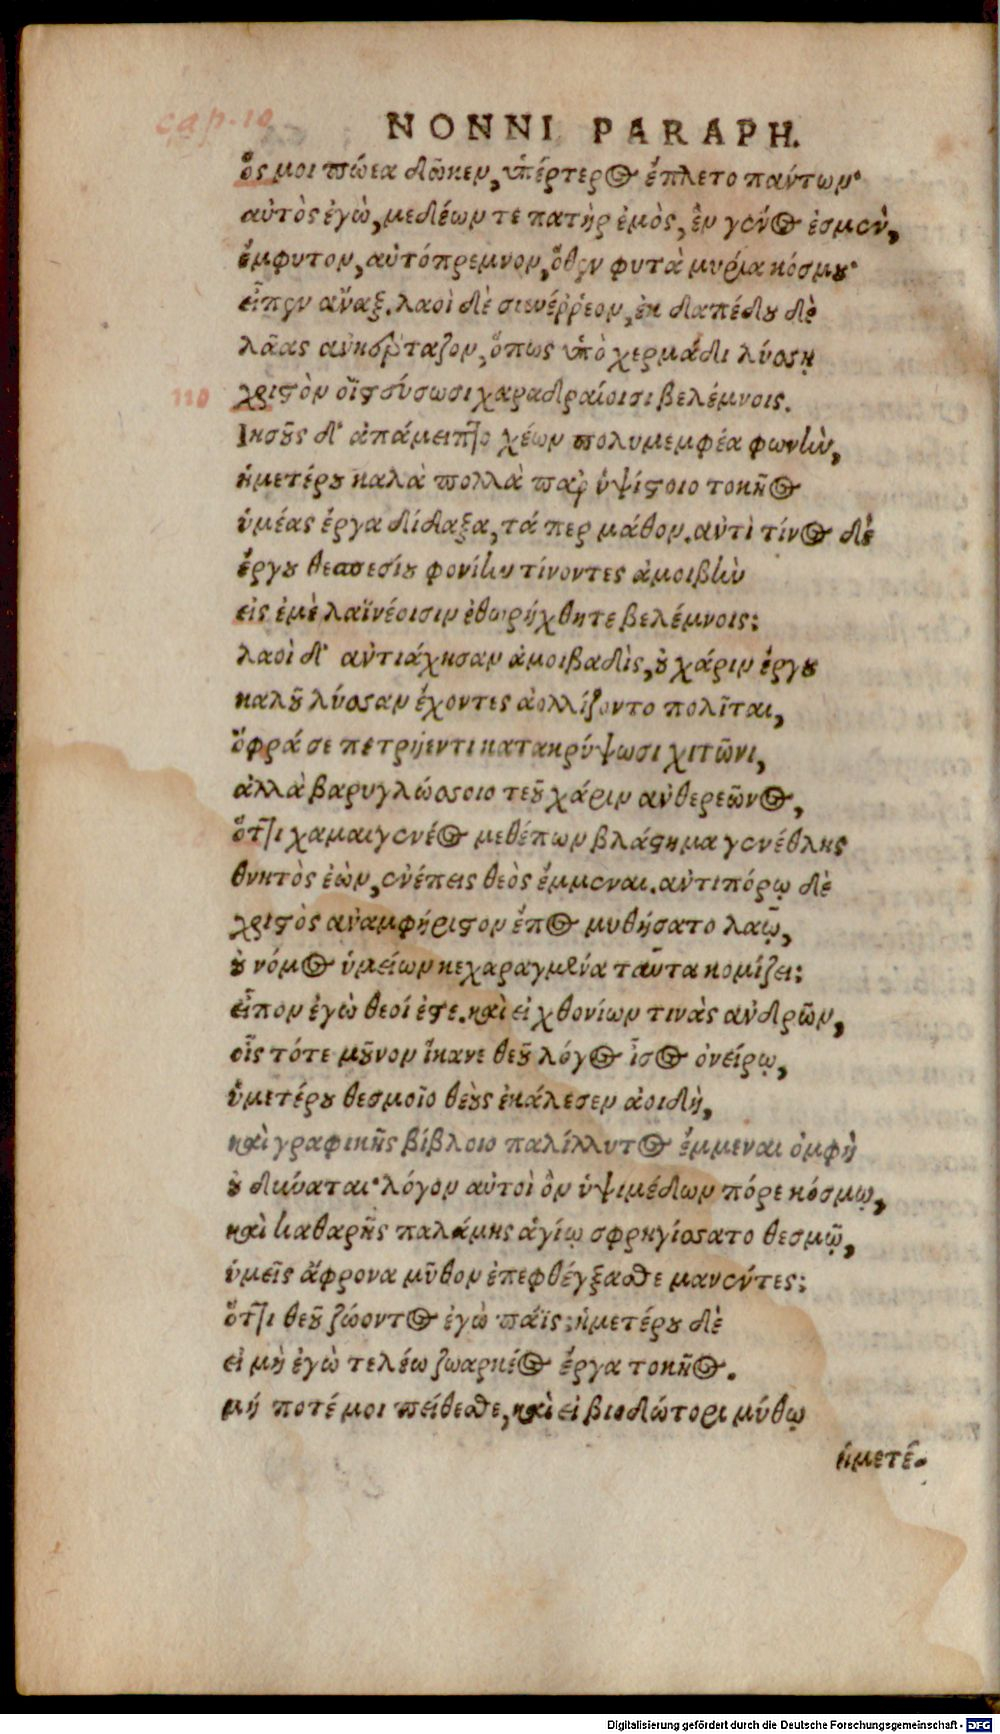 cap. 10
NONNI PARAPH.
ὅς μοι πώεα δῶκεν, ὑπέρτερος ἔπλετο πάντων·
αὐτὸς ἐγὼ, μεδέων τε πατὴρ ἐμὸς, ἓν γένος ἐσμὲν,
ἔμφυτον, αὐτόπρεμνον, ὅθεν φυτὰ μυρία κόσμου·
εἶπεν ἄναξ. λαοὶ δὲ συνέρρεον, ἐκ δαπέδου δὲ
λᾶας ἀνεκούφταζον, ὅπως ὑπὸ χερμάδι λύσσῃ
110
χριστὸν ὀϊστεύσωσι χαραδραίοισι βελέμνοις.
Ἰησοῦς δ' ἀπάμειπτο χέων πολυμεμφέα φωνὴν,
ἡμετέρου καλὰ πολλὰ παρ' ὑψίστοιο τοκῆος
ὑμέας ἔργα δίδαξα, τά περ μάθον. ἀντὶ τίνος δὲ
ἔργου θεσπεσίου φονίην τίνοντες ἀμοιβὴν
εἰς ἐμὲ λαϊνέοισιν ἐθωρήχθητε βελέμνοις;
λαοὶ δ' ἀντιάχησαν ἀμοιβαδὶς, οὐ χάριν ἔργου
καλοῦ λύσσαν ἔχοντες ἀολλίζοντο πολῖται,
ὄφρά σε πετρήεντι κατακρύψωσι χιτῶνι,
ἀλλὰ βαρυγλώσσοιο τεοῦ χάριν ἀνθερεῶνος,
ὅττι χαμαιγενέος μεθέπων βλάστημα γενέθλης
θνητὸς ἐὼν, ἐνέπεις θεὸς ἔμμεναι. ἀντιπόρῳ δὲ
χριστὸς ἀναμφήριστον ἔπος μυθήσατο λαῷ,
οὐ νόμος ὑμείων κεχαραγμένα ταῦτα κομίζει;
εἶπον ἐγὼ θεοί ἐστε. καὶ εἰ χθονίων τινὰς ἀνδρῶν,
οἷς τότε μοῦνον ἵκανε θεοῦ λόγος ἶσος ὀνείρῳ,
ὑμετέρου θεσμοῖο θεοὺς ἐκάλεσεν ἀοιδὴ,
καὶ γραφικῆς βίβλοιο παλίλλυτος ἔμμεναι ὀμφὴ
οὐ δύναται· λόγον αὐτοὶ ὃν ὑψιμέδων πόρε κόσμῳ,
καὶ καθαρῆς παλάμης ἁγίῳ σφρηγίσσατο θεσμῷ,
ὑμεῖς ἄφρονα μῦθον ἐπεφθέγξασθε μανέντες;
ὅττι θεοῦ ζώοντος ἐγὼ πάϊς; ἡμετέρου δὲ
εἰ μὴ ἐγὼ τελέω ζωαρκέος ἔργα τοκῆος.
μή ποτέ μοι πείθεσθε, καὶ εἰ βιοδώτορι μύθῳ
ἡμετέ-
Digitalisierung gefördert durch die Deutsche Forschungsgemeinschaft - DFG